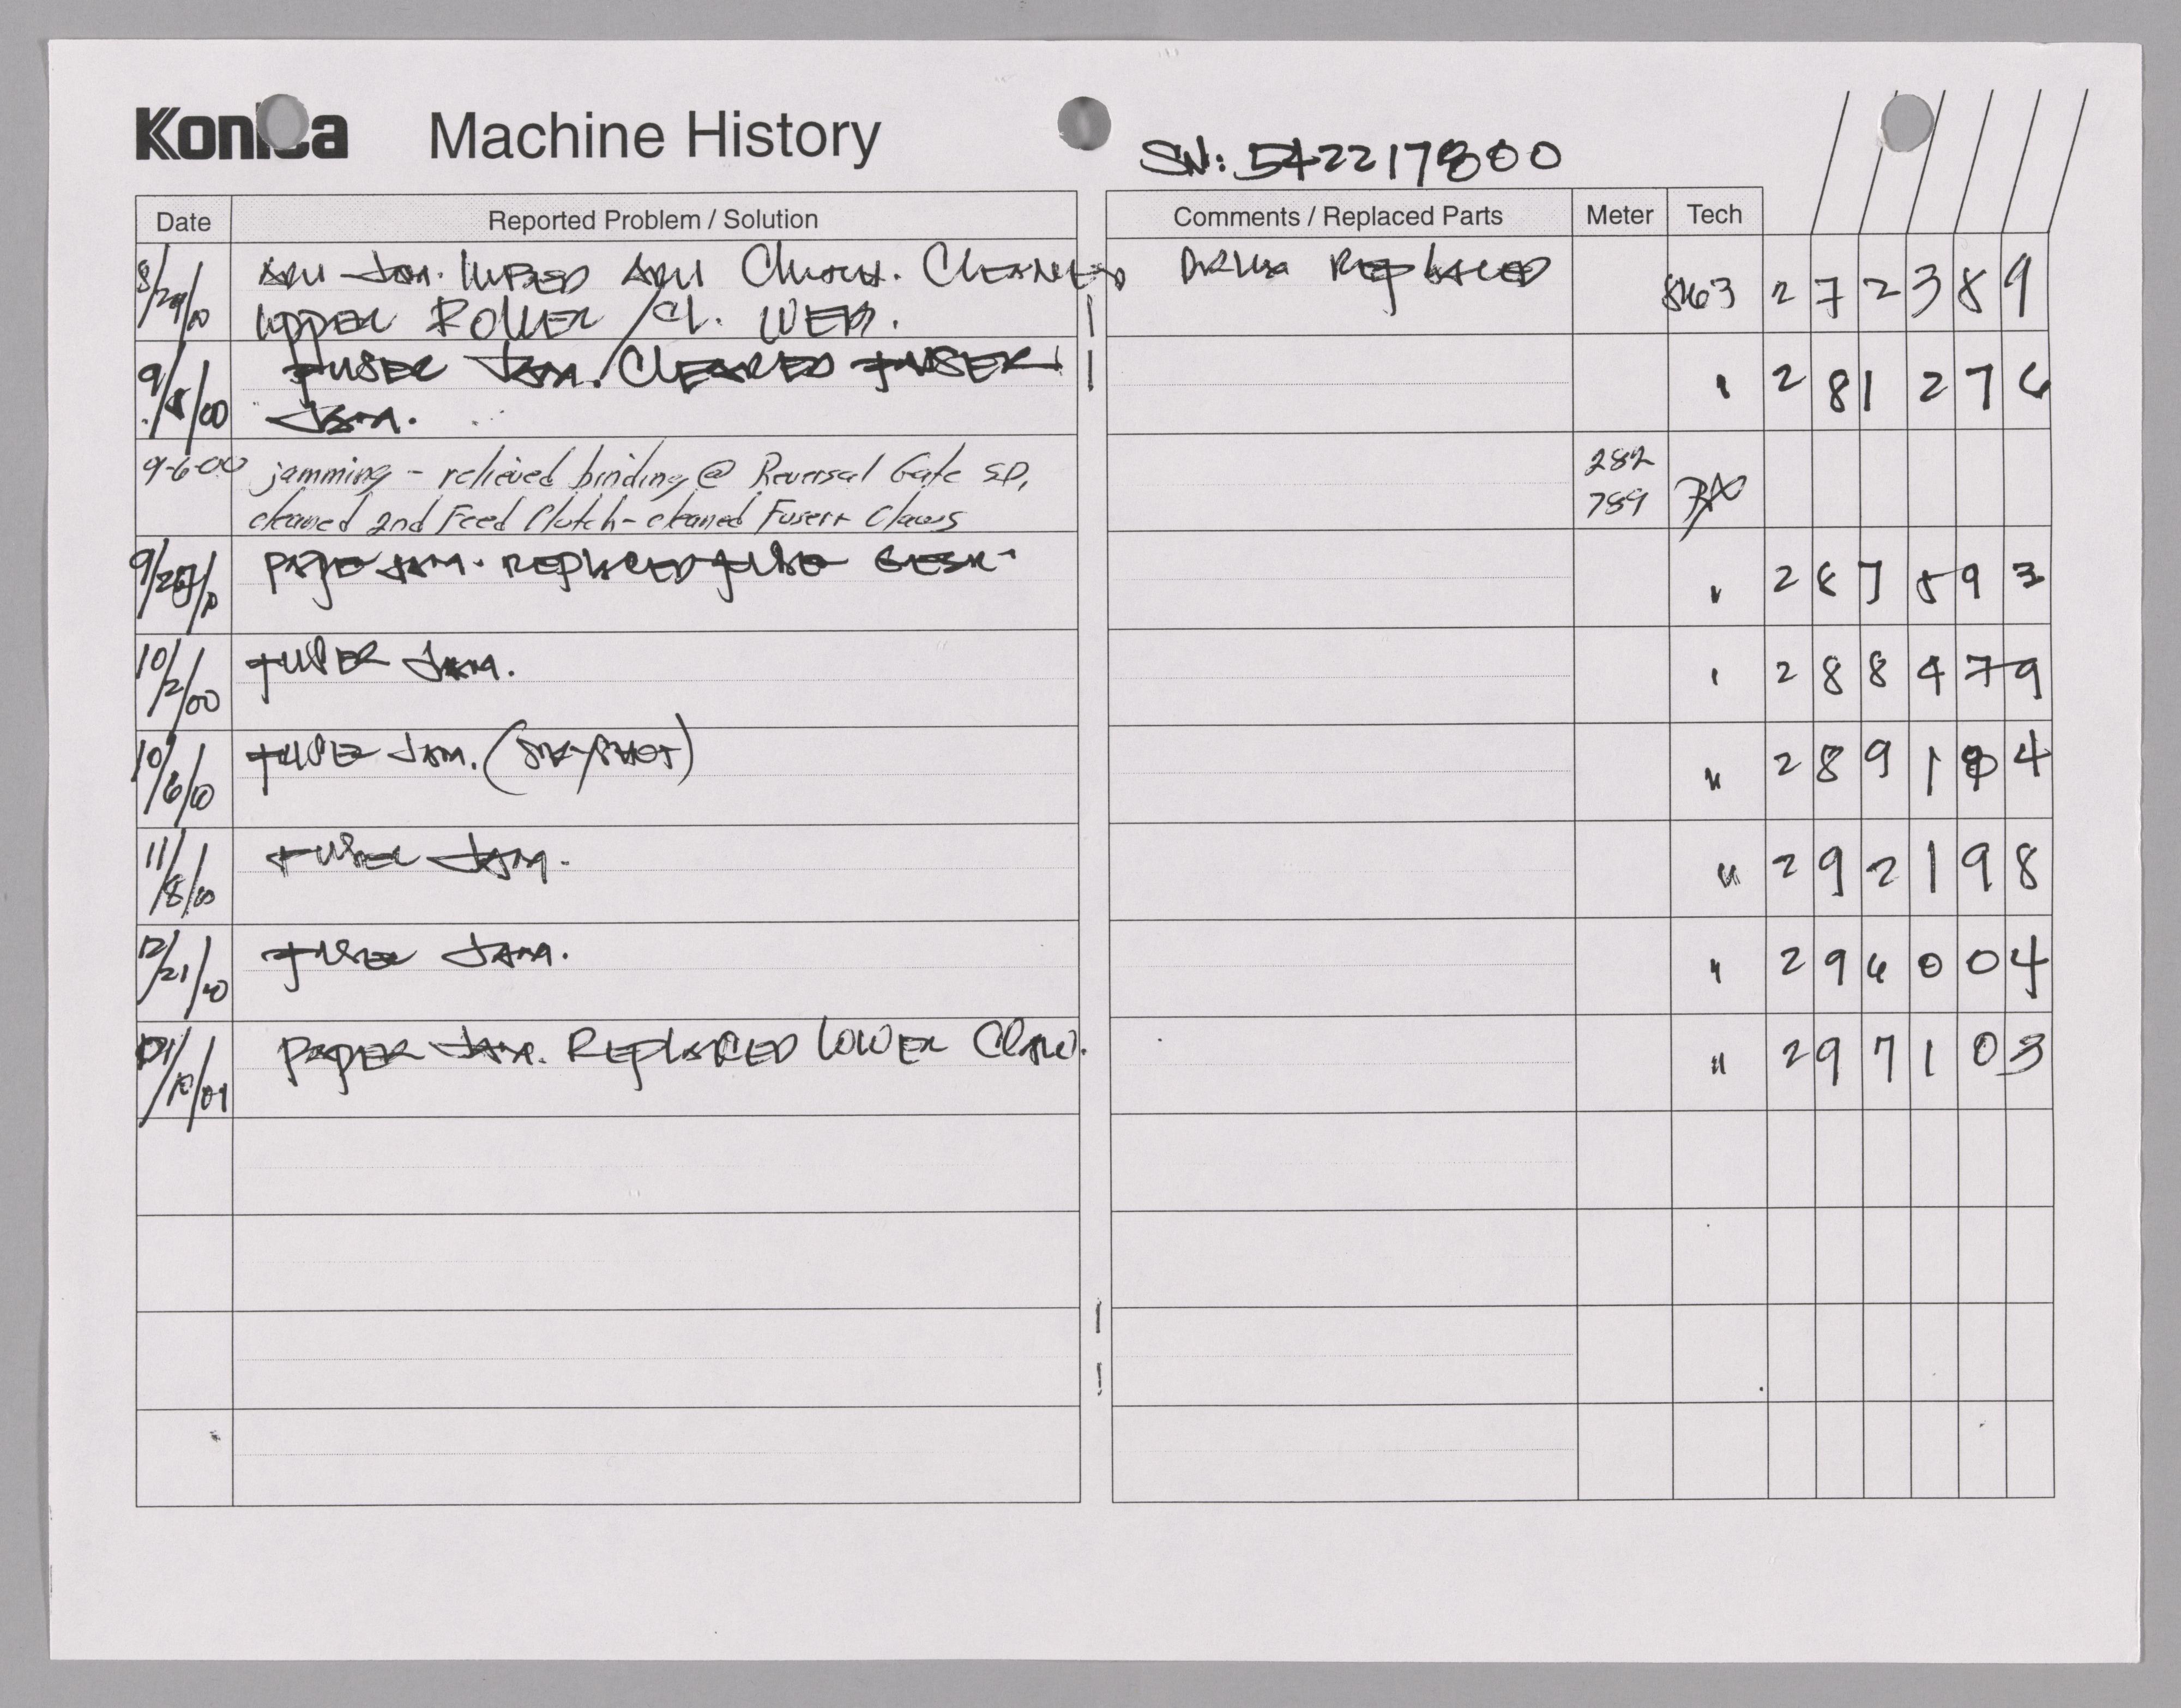 Konica Machine History
SN: 542217800
Date Reported Problem / Solution Comments / Replaced Parts Meter Tech
8/29/00 ADU JAM. LUBED ADU Clutch. CLEANED DRUM REPLACED 8163 2 7 2 3 8 9
UPPER ROLLER/Cl. WEB.
9/5/00 FUSER JAM. CLEARED FUSER 2 8 1 2 7 6
JAM.
9-6-00 jamming - relieved binding @ Reversal Gate SD, 282
cleaned 2nd Feed Clutch - cleaned Fuser + Claws 789
PAPER JAM. REPLACED FUSE " 2 8 7 5 9 3
10/2/00 FUSER JAM. " 2 8 8 4 7 9
10/6/00 FUSER JAM. " 2 8 9 1 4
11/8/00 FUSER JAM. " 2 9 2 1 9 8
12/21/00 FUSER JAM. " 2 9 6 0 0 4
/10/01 PAPER JAM. REPLACED LOWER CLAW. " 2 9 7 1 0 3